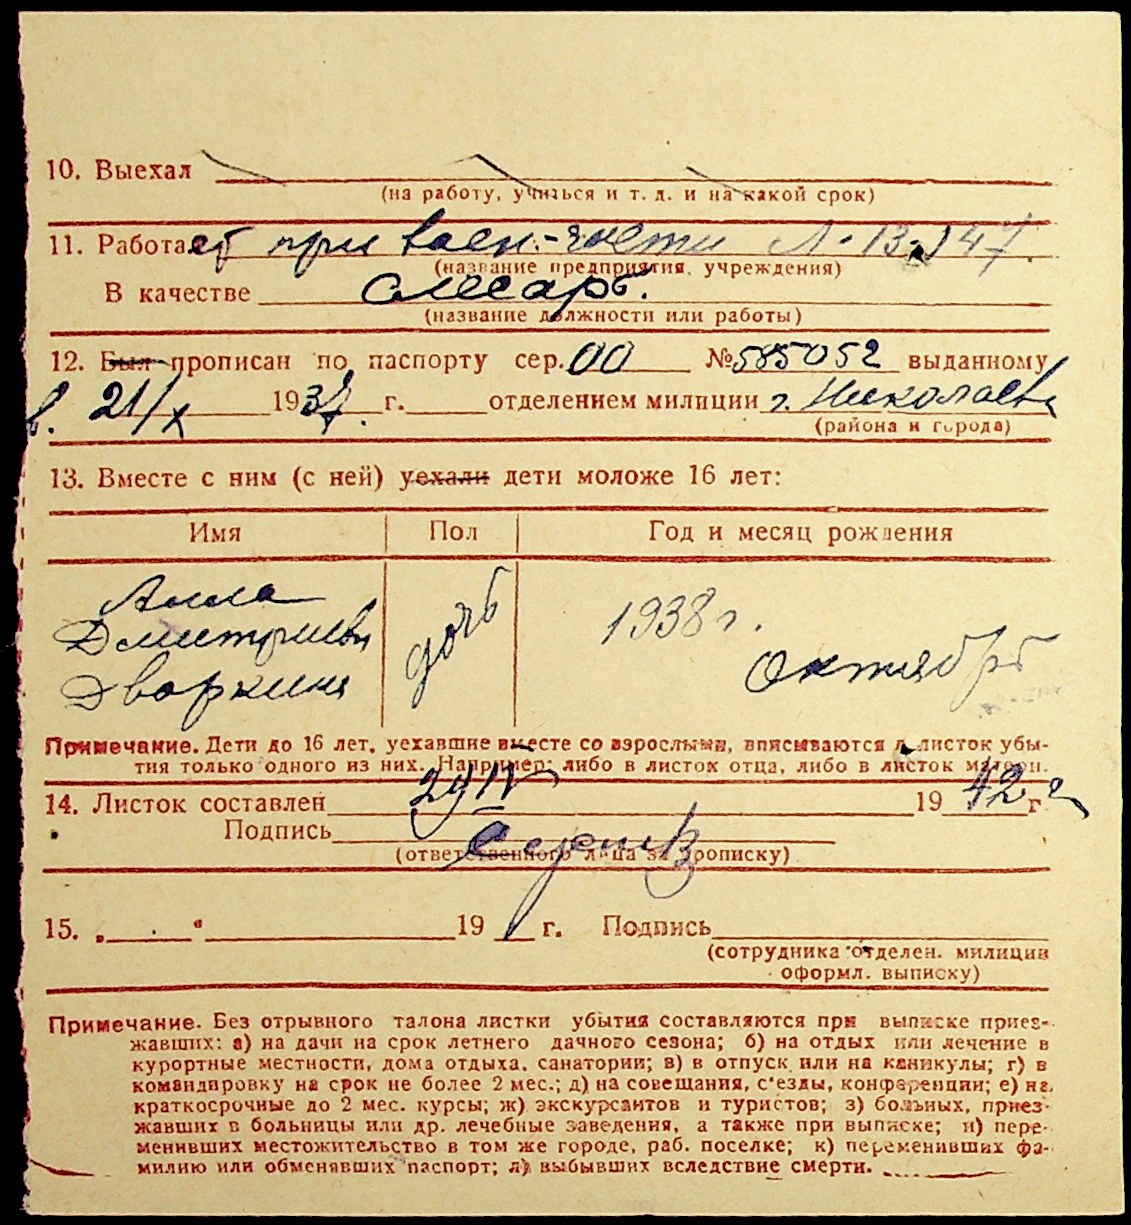 10. Выехал
(на работу, учиться и т. д. и на какой срок)
11. Работает при воен.-части
(название предприятия, учреждения)
В качестве слесарь.
(название должности или работы)
12. Был прописан по паспорту сер. 00 № 585052 выданному
в. 21/X 1937 г. отделением милиции г. Николаев
(района и города)
13. Вместе с ним (с ней) уехали дети моложе 16 лет:
Имя Пол Год и месяц рождения
Алла дочь 1938 г.
Дмитриевн октябрь
Дворкина
Примечание. Дети до 16 лет, уехавшие вместе со взрослыми, вписываются в листок убы-
тия только одного из них. Например: либо в листок отца, либо в листок матери.
14. Листок составлен 29/IV 1942 г
Подпись
(ответственного лица за прописку)
15. „ “ 19 г. Подпись
(сотрудника отделен. милиции
оформл. выписку)
Примечание. Без отрывного талона листки убытия составляются при выписке приез-
жавших: а) на дачи на срок летнего дачного сезона; б) на отдых или лечение в
курортные местности, дома отдыха, санатории; в) в отпуск или на каникулы; г) в
командировку на срок не более 2 мес.; д) на совещания, с'езды, конференции; е) на
краткосрочные до 2 мес. курсы; ж) экскурсантов и туристов; з) больных, приез-
жавших в больницы или др. лечебные заведения, а также при выписке; и) пере-
менивших местожительство в том же городе, раб. поселке; к) переменивших фа-
милию или обменявших паспорт; л) выбывших вследствие смерти.